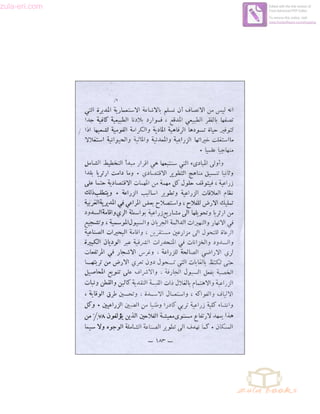 zula-eri.com
انه ليس من الانصاف أن نسلم بالاشاعة الاستعمارية المغرضة التي
تصفها بالفقر الطبيعي المدقع ، فموارد بلادنا الطبيعية كافية جدا
لتوفير حياة تسودها الرفاهية المادية والكرامة القومية لشعبها اذا
ما استغلت خيراتها الزراعية والمعدنية والمائية والحيوانية استغلالا
منهاجيا علميا •
وأولى المبادىء التي سننتهجها هي اقرار مبدأ التخطيط الشامل
وثانيا تنسيق مناهج التطوير الاقتصادي • وما دامت ارتريا بلدا
زراعية ، فيتوقف حلول كل مهمة من المهمات الاقتصادية حتما على
نظام العلاقات الزراعية وتطوير اساليب الزراعة • ويتطلب ذلك
تمليك الارض للفلاح ، واستصلاح بعض المراعي في المديرية الغربية
من ارتريا وتحويلها الى مشاريع زراعية بواسطة الري واقامة السدود
في الانهار والنهيرات الدائمة الجريان والسيول الموسمية ، وتشجيع
الرعاة للتحول الى مزارعين مستقرين ، واقامة البحيرات الصناعية
والسدود والخزانات في المنحدرات الشرقية عبر الوديان الكبيرة
لري الاراضي الصالحة للزراعة • وغرس الاشجار في المرتفعات
حتى تكتظ بالغابات التي تحول دون تعري الارض من تربتها
الخصبة بفعل السيول الجارفة ، والاشراف على تنويع المحاصيل
الزراعية والاهتمام بالغلال ذات القيمة النقدية كالبن والقطن ونبات
الالياف والفواكه ، واستعمال الاسمدة ، وتحسين طرق الوقاية ،
وانشاء كلية زراعية تربي كادرا وطنيا من الفنيين الزراعيين • وكل
هذا يمهد لارتفاع مستوى معيشة الفلاحين الذين يؤلفون ٧٨٪ من
السكان • كما تهدف الى تطوير الصناعة الشاملة الوجوه ولا سيما
— ١٨٣ —